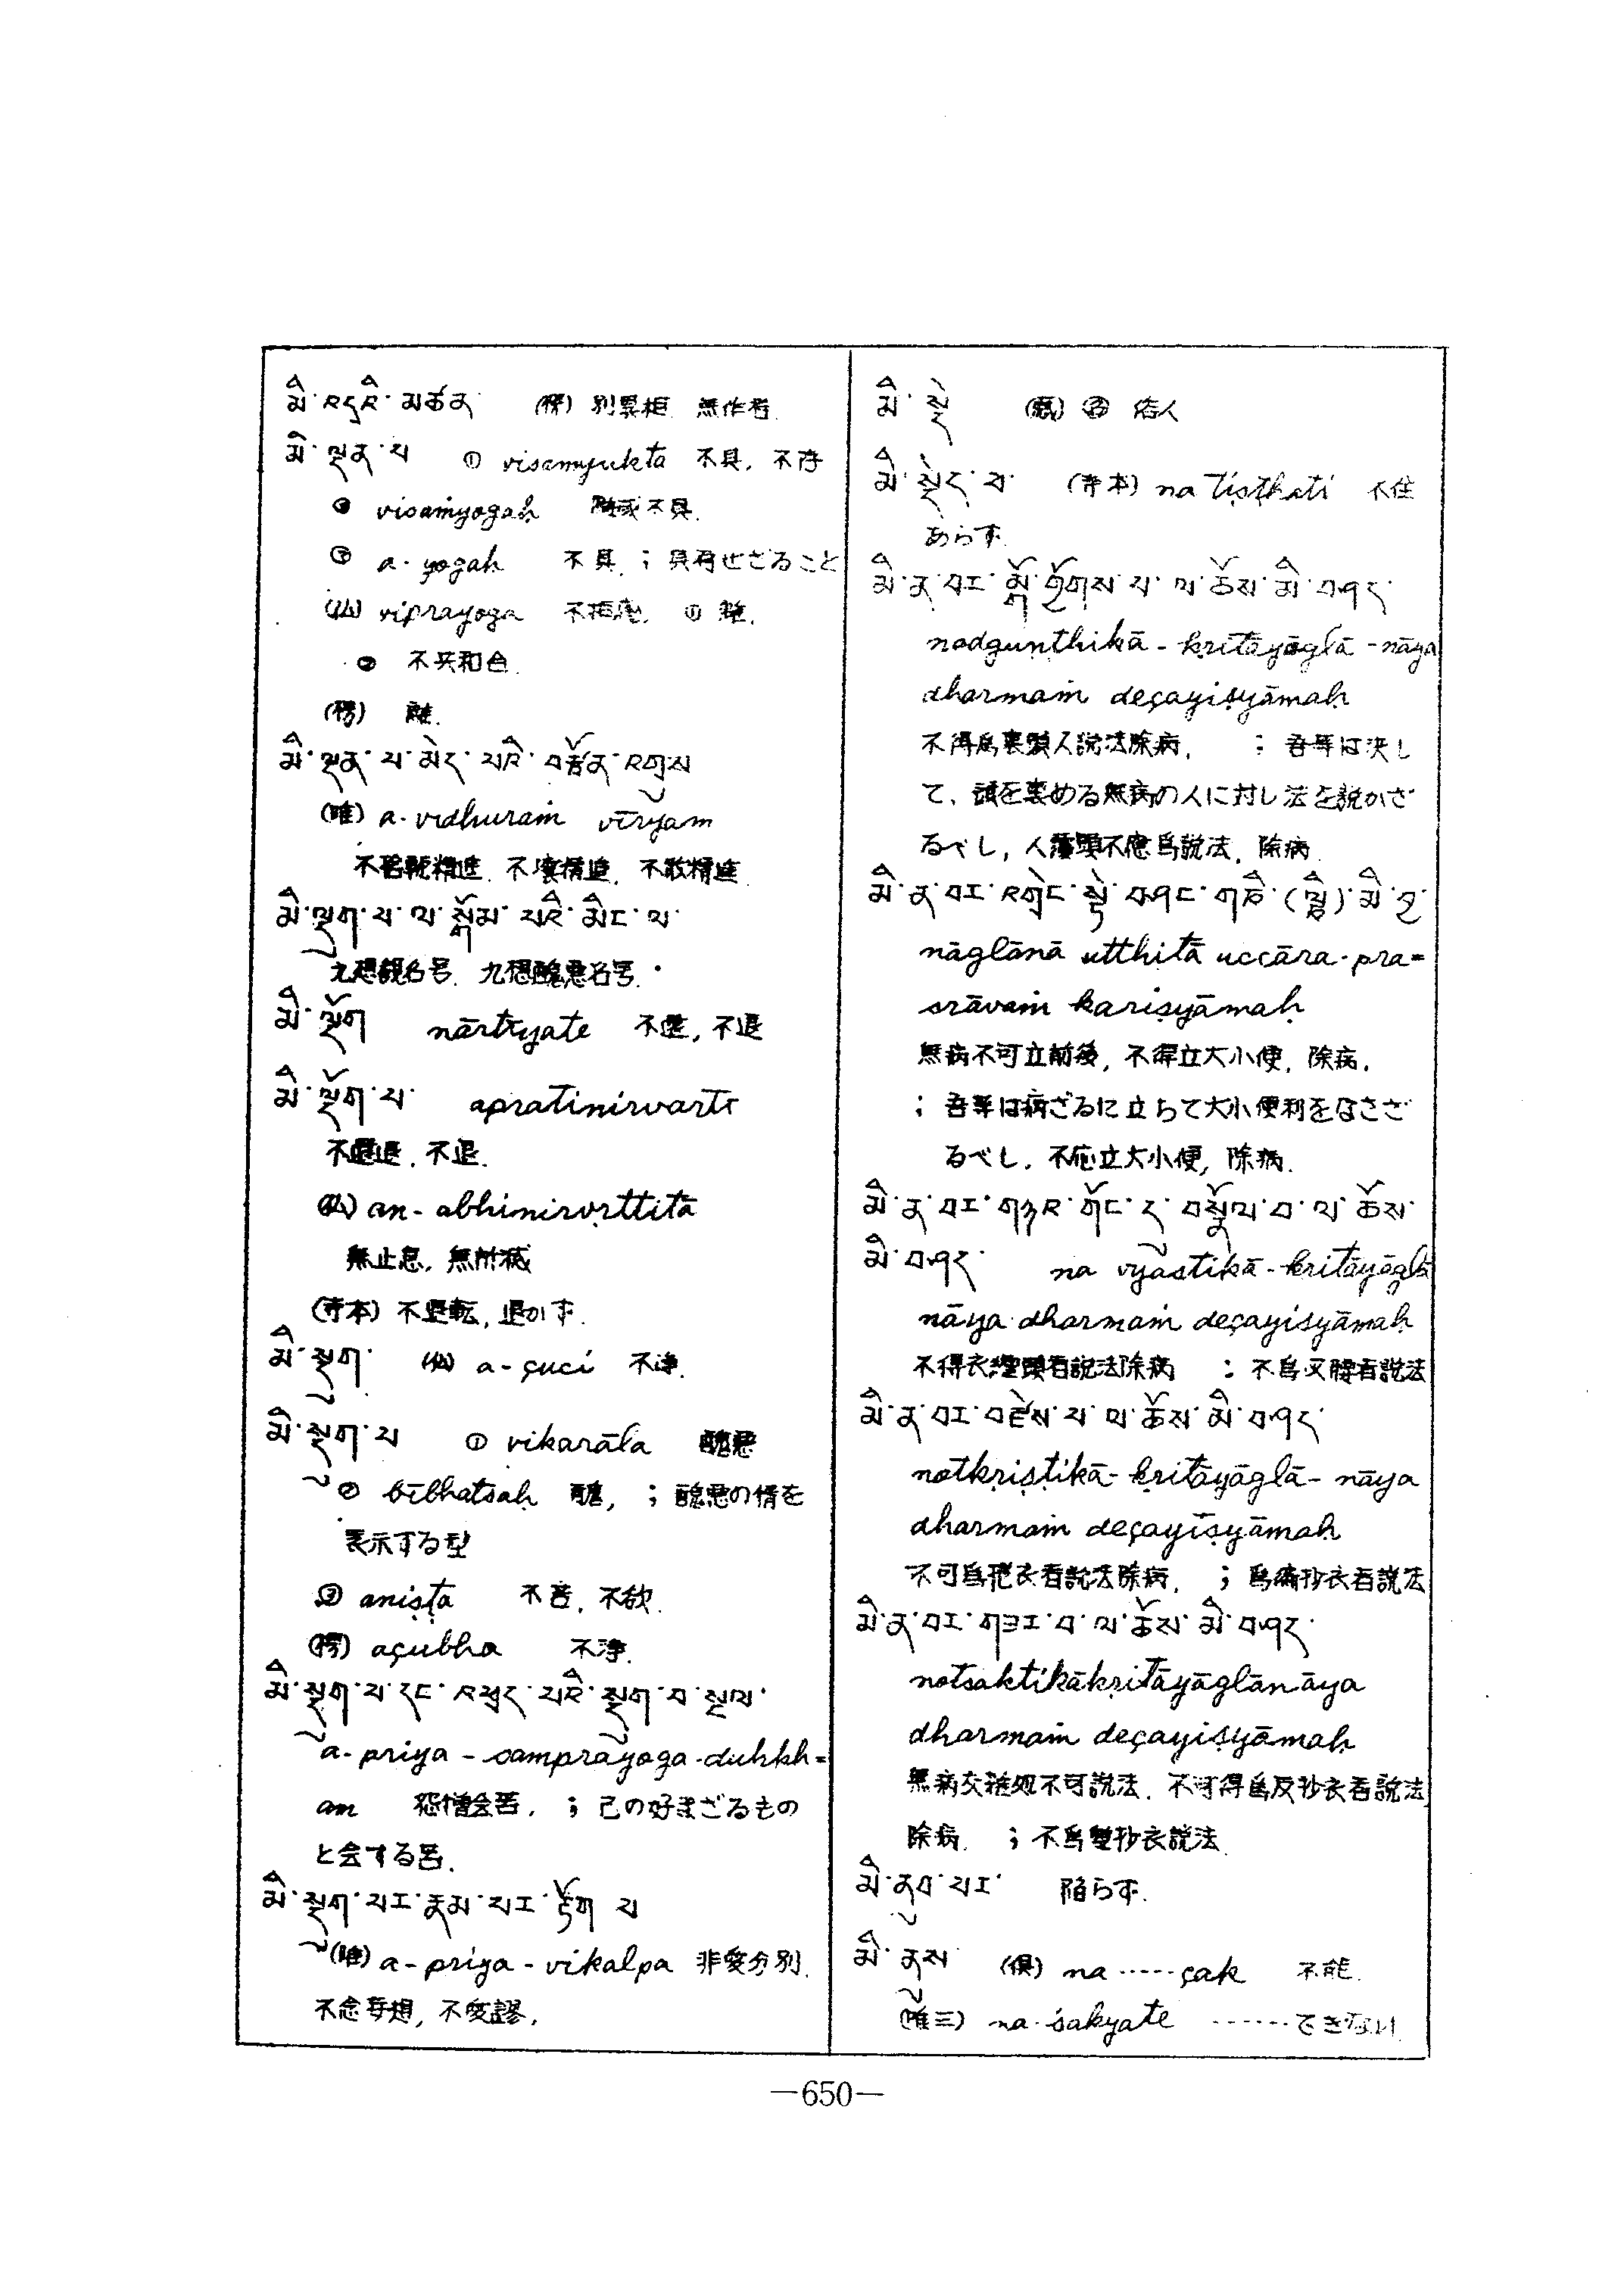 མི་འདྲའི་མཚན་ (楞) 別異相 無作者
མི་ལྡན་པ ① visamyukta 不具, 不存
② visaṁyogaḥ 不具.
③ a-yogaḥ 不具. ; 具有せざること
(仏) viprayoga 不相應. ① 離.
② 不共和合.
(楞) 離.
མི་ལྡན་པ་མེད་པའི་བརྩོན་འགྲུས
(唯) a-vidhuraṁ vīryam
不壞精進. 不散精進
མི་སྡུག་པ་ལ་སྒོམ་པའི་མིང་ལ་
九想觀名号. 九想醜悪名号.
མི་ལྡོག nārtīyate 不退
མི་ལྡོག་པ་ apratinirvarti
不退.
(仏) an-abhinirvṛttitā
無止息. 無所滅
(寺本) 不退転, 退かず.
མི་སྡུག་ (仙) a-çuci 不浄.
མི་སྡུག་པ ① vikarāla 醜悪
② bībhatsaḥ 醜, ; 醜悪の情を
表示する型
③ aniṣṭa 不欲.
(楞) açubha 不浄.
མི་སྡུག་པ་དང་འཕྲད་པའི་སྡུག་བསྔལ་
a-priya-samprayoga-duḥkh=
am 怨憎会苦. ; 己の好まざるもの
と会する苦.
མི་སྡུག་པར་རྣམ་པར་རྟོག་པ
(唯) a-priya-vikalpa 非愛分別.
不念妄想, 不愛謬.
མི་སྡེ 俗人
མི་སྡོད་པ་ (寺本) na tiṣṭhati 不住
あらず.
མི་ན་བར་མགོ་གཡོགས་པ་ལ་ཆོས་མི་བཤད་
nodguṇthikā-kṛitāyāglā-nāya
dharmaṁ deçayiṣyāmaḥ
不得為裹頭人説法除病. ; 吾等は決し
て、頭を裹める無病の人に対し法を説かざ
るべし, 人覆頭不應為説法, 除病.
མི་ན་བར་འགྲེང་སྟེ་བཤང་གཅི་(ལྕི་)མི་བྱ་
nāglānā utthitā uccāra-pra=
srāvaṁ kariṣyāmaḥ
無病不可立前後, 不得立大小便, 除病.
; 吾等は病ざるに立ちて大小便利をなさざ
るべし. 不応立大小便, 除病.
མི་ན་བར་གཉའ་གོང་དུ་བསྣོལ་བ་ལ་ཆོས་
མི་བཤད་ na vyastikā-kritāyāglā
nāya dharmaṁ deçayiṣyāmaḥ
不得衣纏頭者説法除病 : 不為叉腰者説法
མི་ན་བར་བརྫེས་པ་ལ་ཆོས་མི་བཤད་
notkṛiṣṭikā-kṛitāyāglā-nāya
dharmaṁ deçayiṣyāmaḥ
不可為者説法除病. ; 為抄衣者説法
མི་ན་བར་གཟར་བ་ལ་ཆོས་མི་བཤད་
notsaktikākṛitāyāglānāya
dharmaṁ deçayiṣyāmaḥ
不可説法. 不可得為反抄衣者説法
除病. ; 不為雙抄衣説法.
མི་ནུབ་པར་ 陥らず.
མི་ནུས (倶) na ……çak 不能.
(唯三) na-śakyate ……できない.
—650—